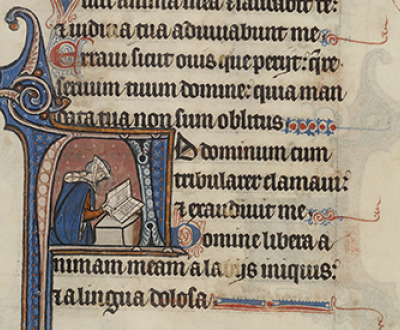 Uiuet anima mea ⁊ laudabit te:
⁊ iudicia tua adiuuabunt me
Erraui sicut ouis que peryt: qre
seruum tuum domine: quia man
data tua non sum oblitus
Ad dominum cum
tribularer clamaui:
⁊ exaudiuit me
Domine libera a
nimam meam a labijs iniquis:
⁊ a lingua dolosa